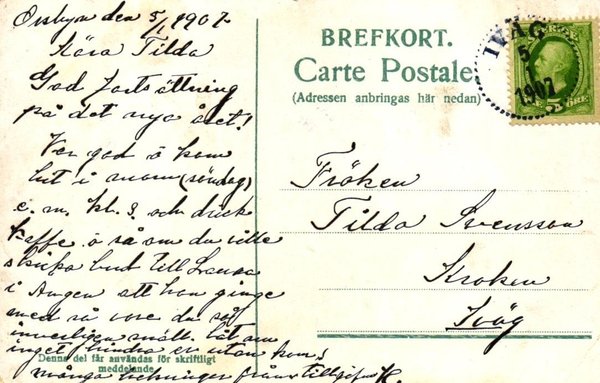 Orsbyn den 5/1 1907.
Kära Tilda
God fortsättning
på det nya året!
Var god o kom
hit i morn (söndag)
e. m. kl. 3. och drick
kaffe o så om du ville
skicka bud till
i Ängen att han ginge
med så vore du så
innerligen snäll. Låt nu
inget hindra er utan kom.
många hälsningar från
Denna del får användas för skriftligt
meddelande.
BREFKORT.
Carte Postale
(Adressen anbringas här nedan)
IVÄG
5
1
1907
SVERIGE
5 ÖRE
Fröken
Tilda Svensson
Kroken
Iväg